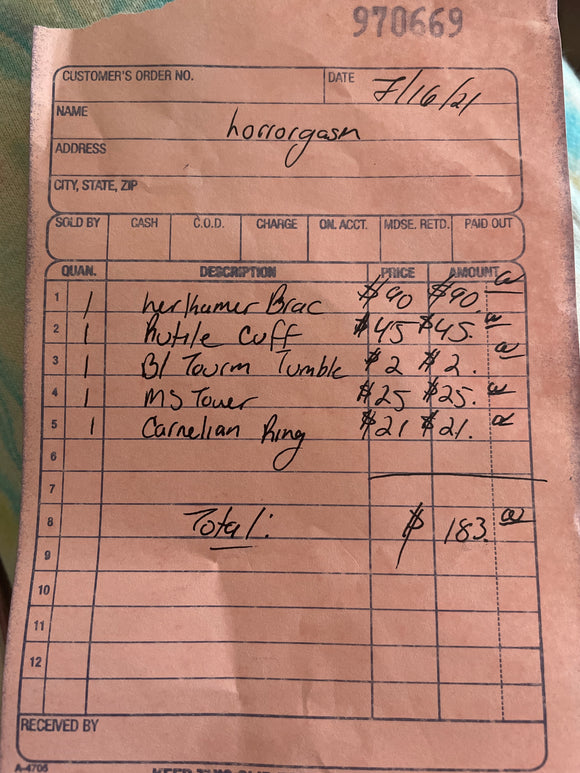 970669
CUSTOMER'S ORDER NO. DATE 7/16/21
NAME horrorgasm
ADDRESS
CITY, STATE, ZIP
SOLD BY CASH C.O.D. CHARGE ON. ACCT. MDSE. RETD. PAID OUT
QUAN. DESCRIPTION PRICE AMOUNT
1 1 herkhamer Brac $90 $90.00
2 1 Rutile Cuff $45 $45.00
3 1 Bl Tourm Tumble $2 $2.00
4 1 MS Tower $25 $25.00
5 1 Carnelian Ring $21 $21.00
6
7
8 Total: $ 183.00
9
10
11
12
RECEIVED BY
A-4705